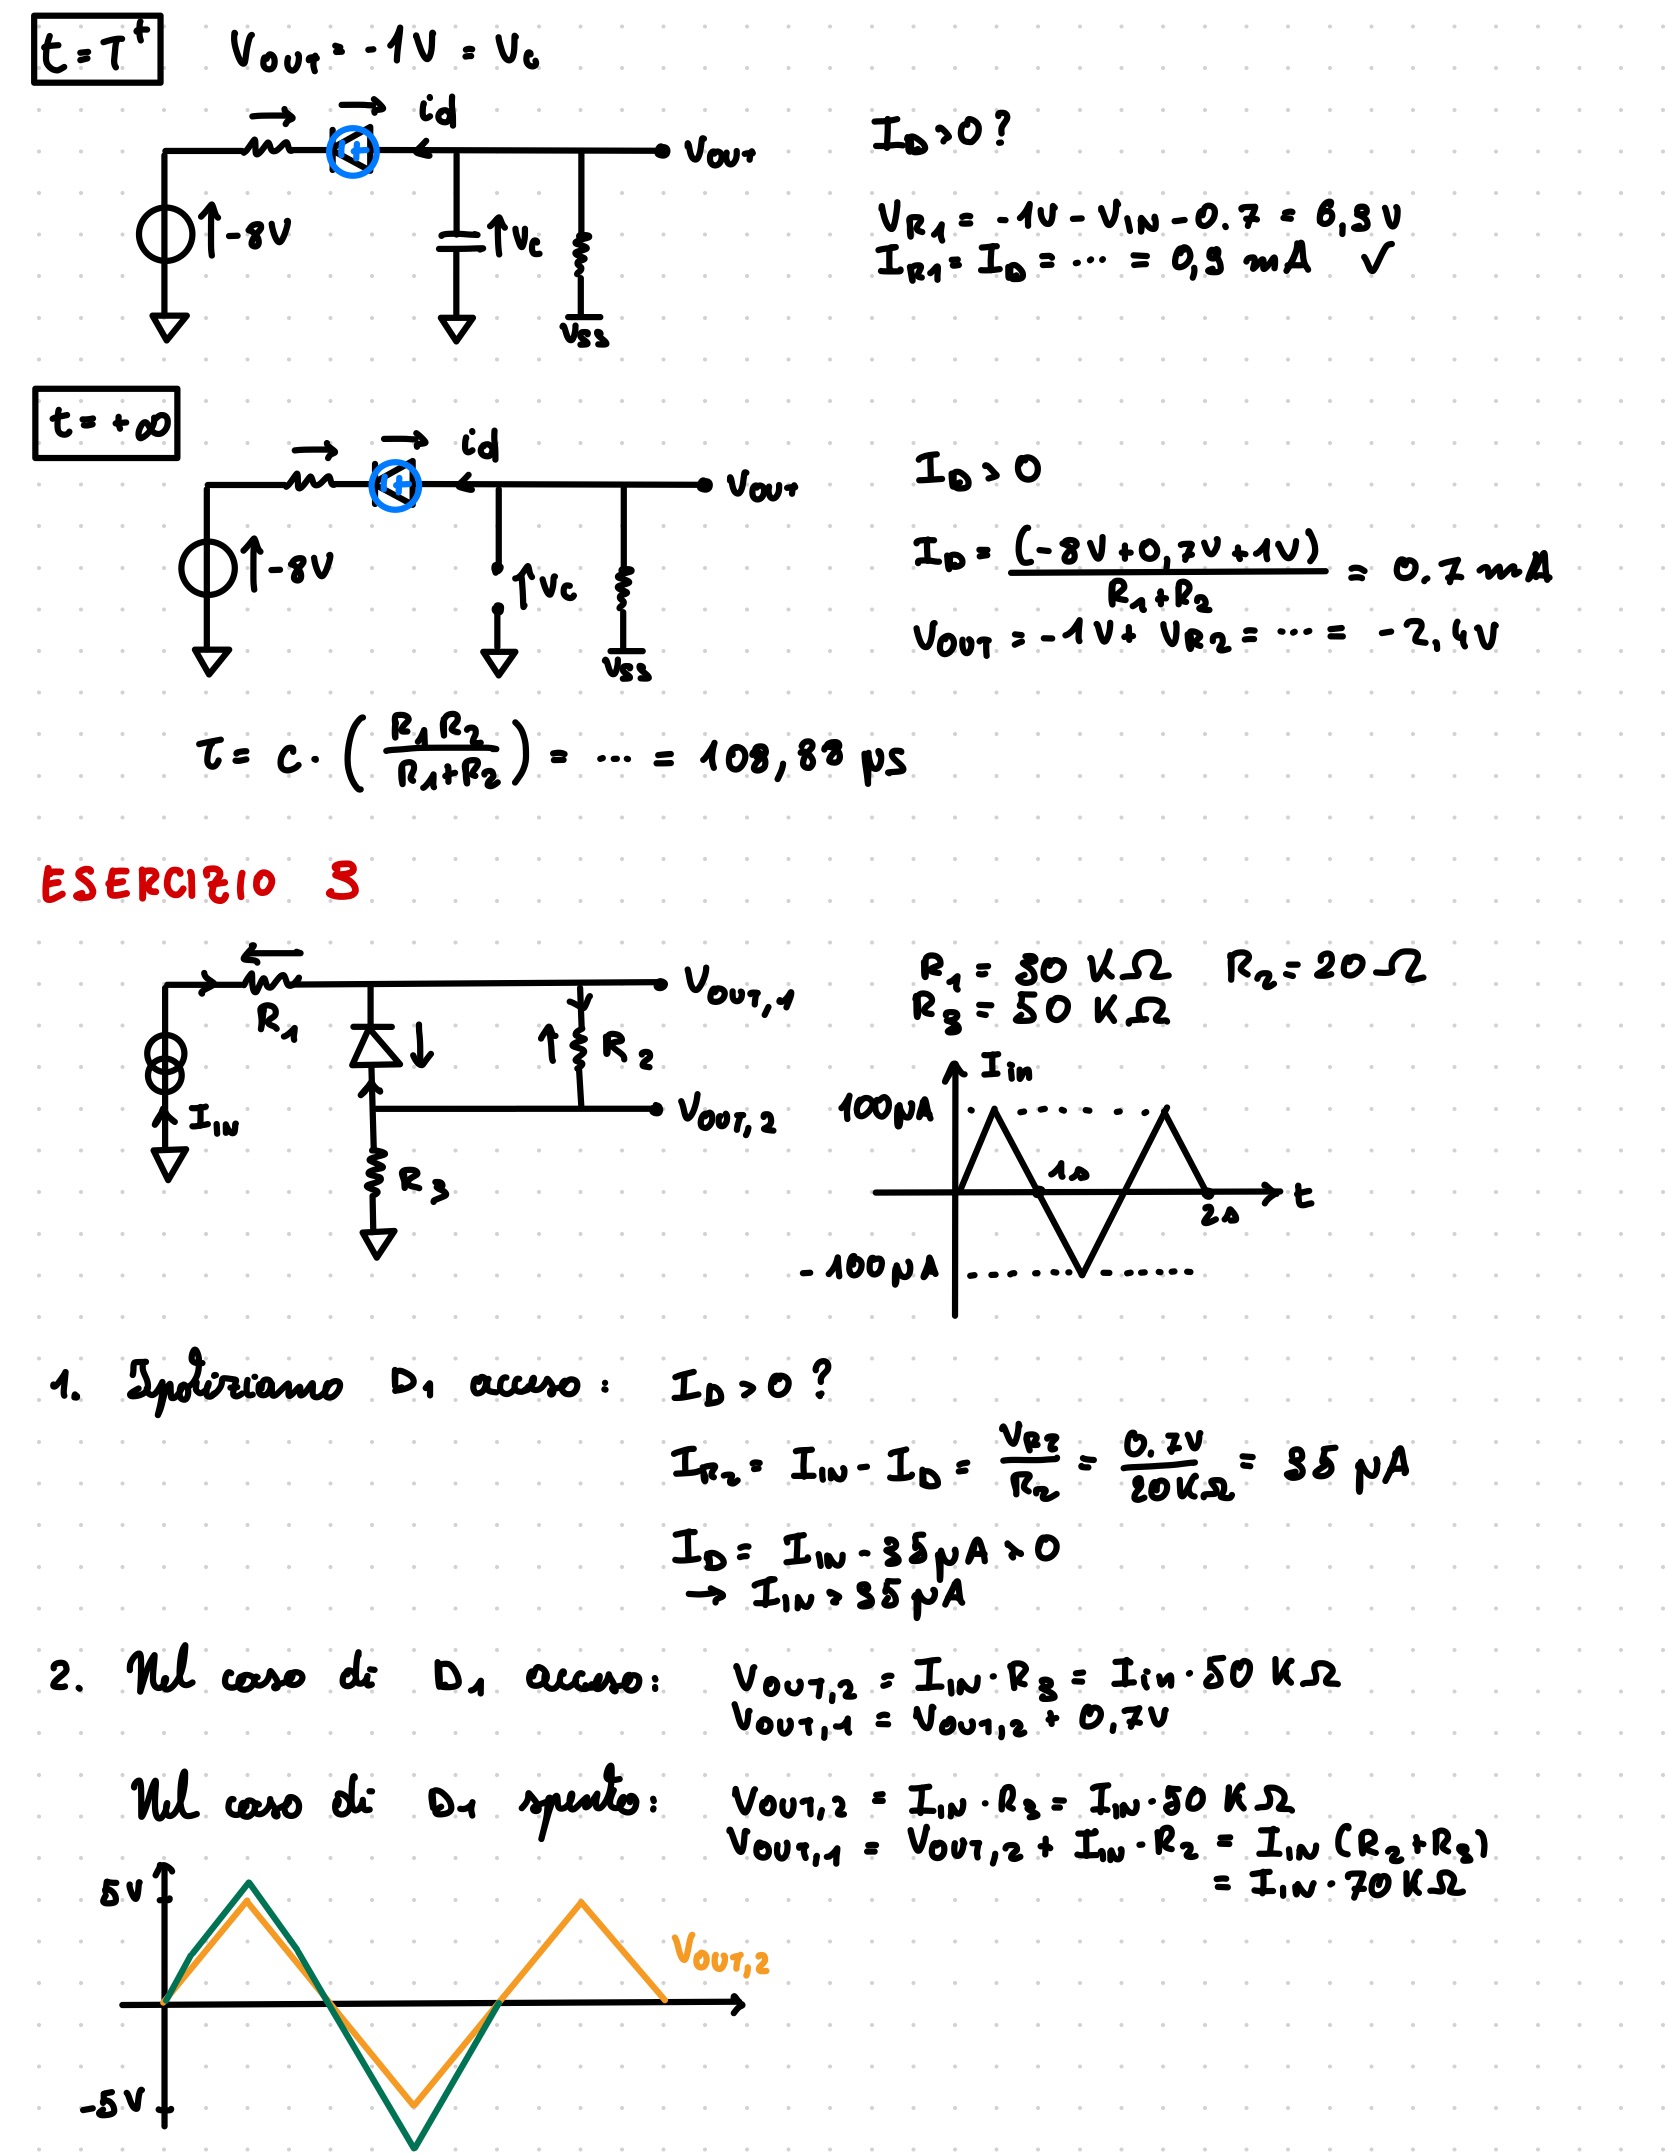 t = T⁺
V_OUT = -1V = V_c
id
-8V
V_c
V_OUT
V_SS
I_D > 0 ?
V_R1 = -1V - V_IN - 0.7 = 6,3 V
I_R1 = I_D = ... = 0,9 mA ✓
t = +∞
id
-8V
V_c
V_OUT
V_SS
I_D > 0
I_D = (-8V+0,7V+1V) / (R_1+R_2) = 0.7 mA
V_OUT = -1V + V_R2 = ... = -2,4V
τ = C · (R_1 R_2 / (R_1+R_2)) = ... = 108,88 μs
ESERCIZIO 3
R_1
I_IN
R_2
R_3
V_OUT,1
V_OUT,2
R_1 = 30 KΩ R_2 = 20 Ω
R_3 = 50 KΩ
I_in
100μA
1s
t
2s
-100μA
1. Ipotizziamo D_1 acceso: I_D > 0 ?
I_R2 = I_IN - I_D = V_R2 / R_2 = 0.7V / 20KΩ = 35 μA
I_D = I_IN - 35μA > 0
→ I_IN > 35 μA
2. Nel caso di D_1 acceso: V_OUT,2 = I_IN · R_3 = I_in · 50 KΩ
V_OUT,1 = V_OUT,2 + 0,7V
Nel caso di D_1 spento: V_OUT,2 = I_IN · R_3 = I_IN · 50 KΩ
V_OUT,1 = V_OUT,2 + I_IN · R_2 = I_IN (R_2+R_3)
= I_IN · 70 KΩ
5V
V_OUT,2
-5V